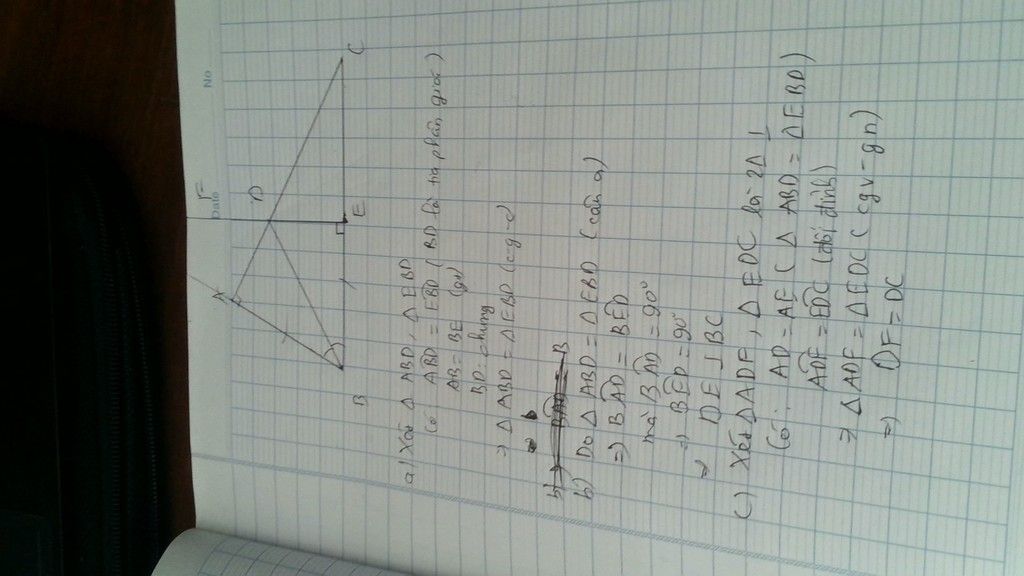 No
Date
F
A
D
B
E
C
a) Xét Δ ABD, Δ EBD
Có ABD̂ = EBD̂ ( BD là tia phân giác )
AB = BE (gt)
BD: chung
=> Δ ABD = Δ EBD (c-g-c)
b) Do Δ ABD = Δ EBD (câu a)
=> BAD̂ = BED̂
mà BAD̂ = 90°
=> BED̂ = 90°
=> DE ⊥ BC
c) Xét Δ ADF, Δ EDC là 2Δ ⊥
Có: AD = AE ( Δ ABD = Δ EBD )
ADF̂ = EDĈ (đối đỉnh)
=> Δ ADF = Δ EDC ( cgv - gn)
=> DF = DC